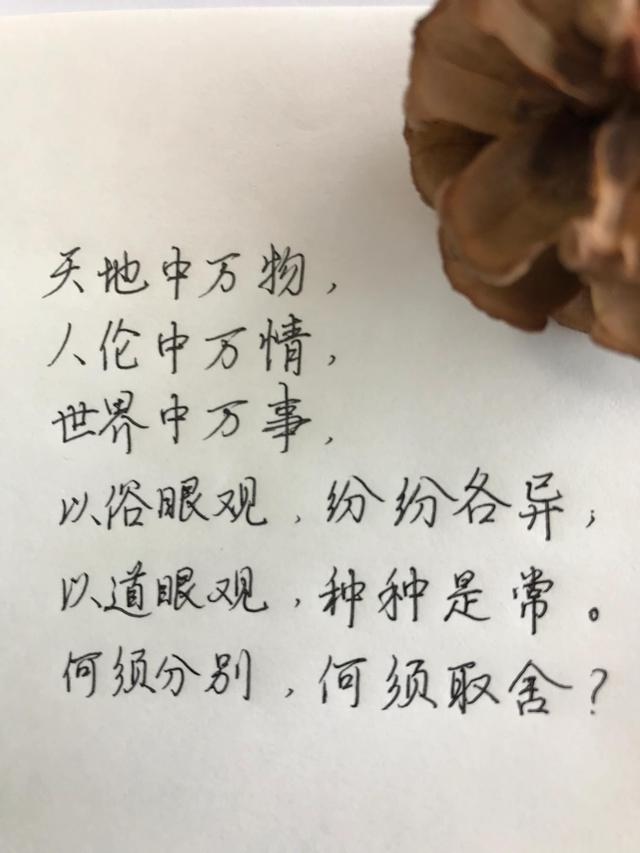 天地中万物，
人伦中万情，
世界中万事，
以俗眼观，纷纷各异；
以道眼观，种种是常。
何须分别，何须取舍？